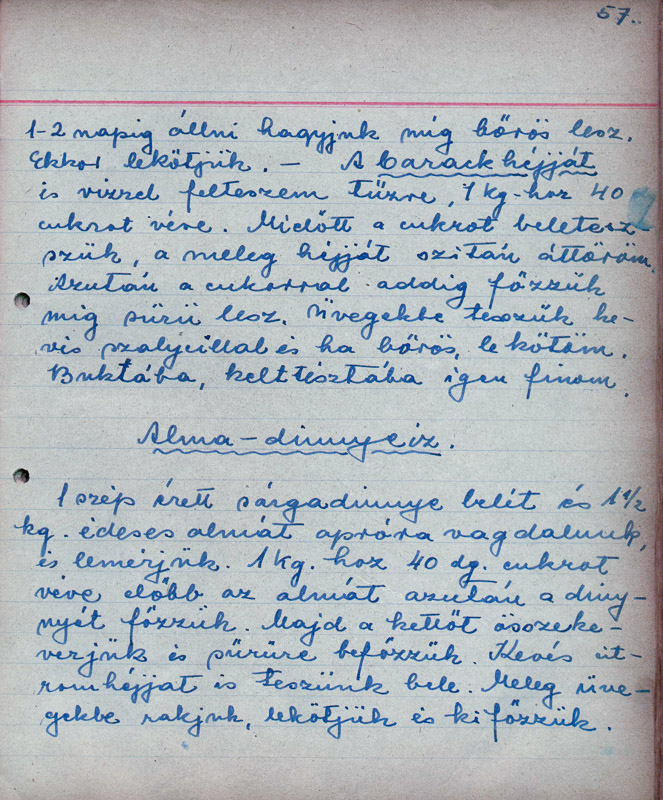 57.
1-2 napig állni hagyjuk míg bőrös lesz.
Ekkor lekötjük. – A barack héjját
is vízzel felteszem tűzre, 1 kg-hoz 40
cukrot véve. Mielőtt a cukrot beletesz-
szük, a meleg héjját szitán áttöröm.
Azután a cukorral addig főzzük
míg sürü lesz. Üvegekbe teszük ke-
vés szalycillal és ha bőrös, lekötöm.
Buktába, kelttésztába igen finom.
Alma-dinnyeíz.
1 szép érett sárgadinnye belét és 1 1/2
kg. édeses almát apróra vagdalunk,
és lemérjük. 1 kg. hoz 40 dg. cukrot
véve előbb az almát azután a diny-
nyét főzzük. Majd a kettőt összeke-
verjük és sürüre befőzzük. Kevés cit-
romhéjjat is teszünk bele. Meleg üve-
gekbe rakjuk, lekötjük és kifőzzük.